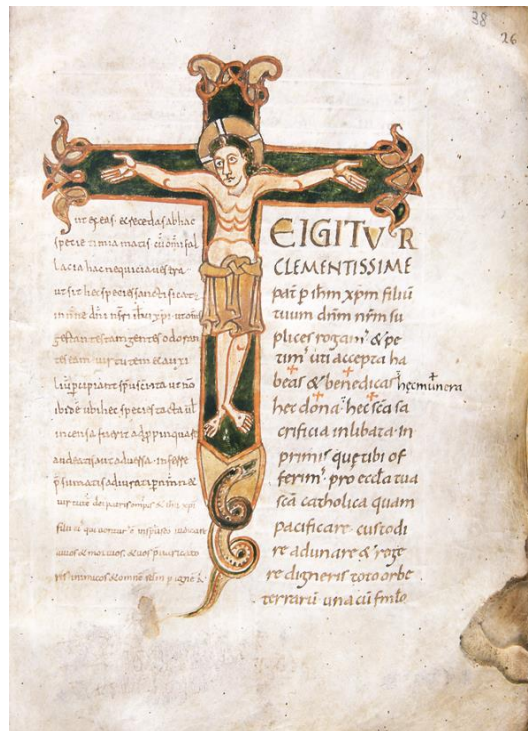 38
26
ut exeas. & secedas ab hac
specie timiamatis cū omī fal
lacia hac nequicia uestra
ut sit hec species sanctificat
in nn̄e dn̄i nr̄i ihū xp̄i. ut om̄s
gestantes tangentes odoran
tes eam uirtutem & auxi
liū percipiant
ubi hec species tacta ul
incensa fuerit adppinquare
audeatis aut aduersa inferre
p̄sumatis adiurati p nm̄ &
uirtute dei patris omp̄s & ihū xp̄i
filii ei' qui uentur' ē in spū sc̄o iudicare
uiuos & mortuos. & uos p̄uaricato
res inimicos & omne sclm p igne &
E IGITVR
CLEMENTISSIME
pat̄ p ihm xpm filiū
tuum dn̄m nr̄m su
plices rogam' & pe
tim' uti accepta ha
beas & benedicas hec munera
hec dona. hec sc̄a sa
crificia inlibata. in
primis que tibi of
ferim' pro eccl̄a tua
sc̄a catholica quam
pacificare. custodi
re adunare & rege
re digneris toto orbe
terrarū una cū fm̄lo